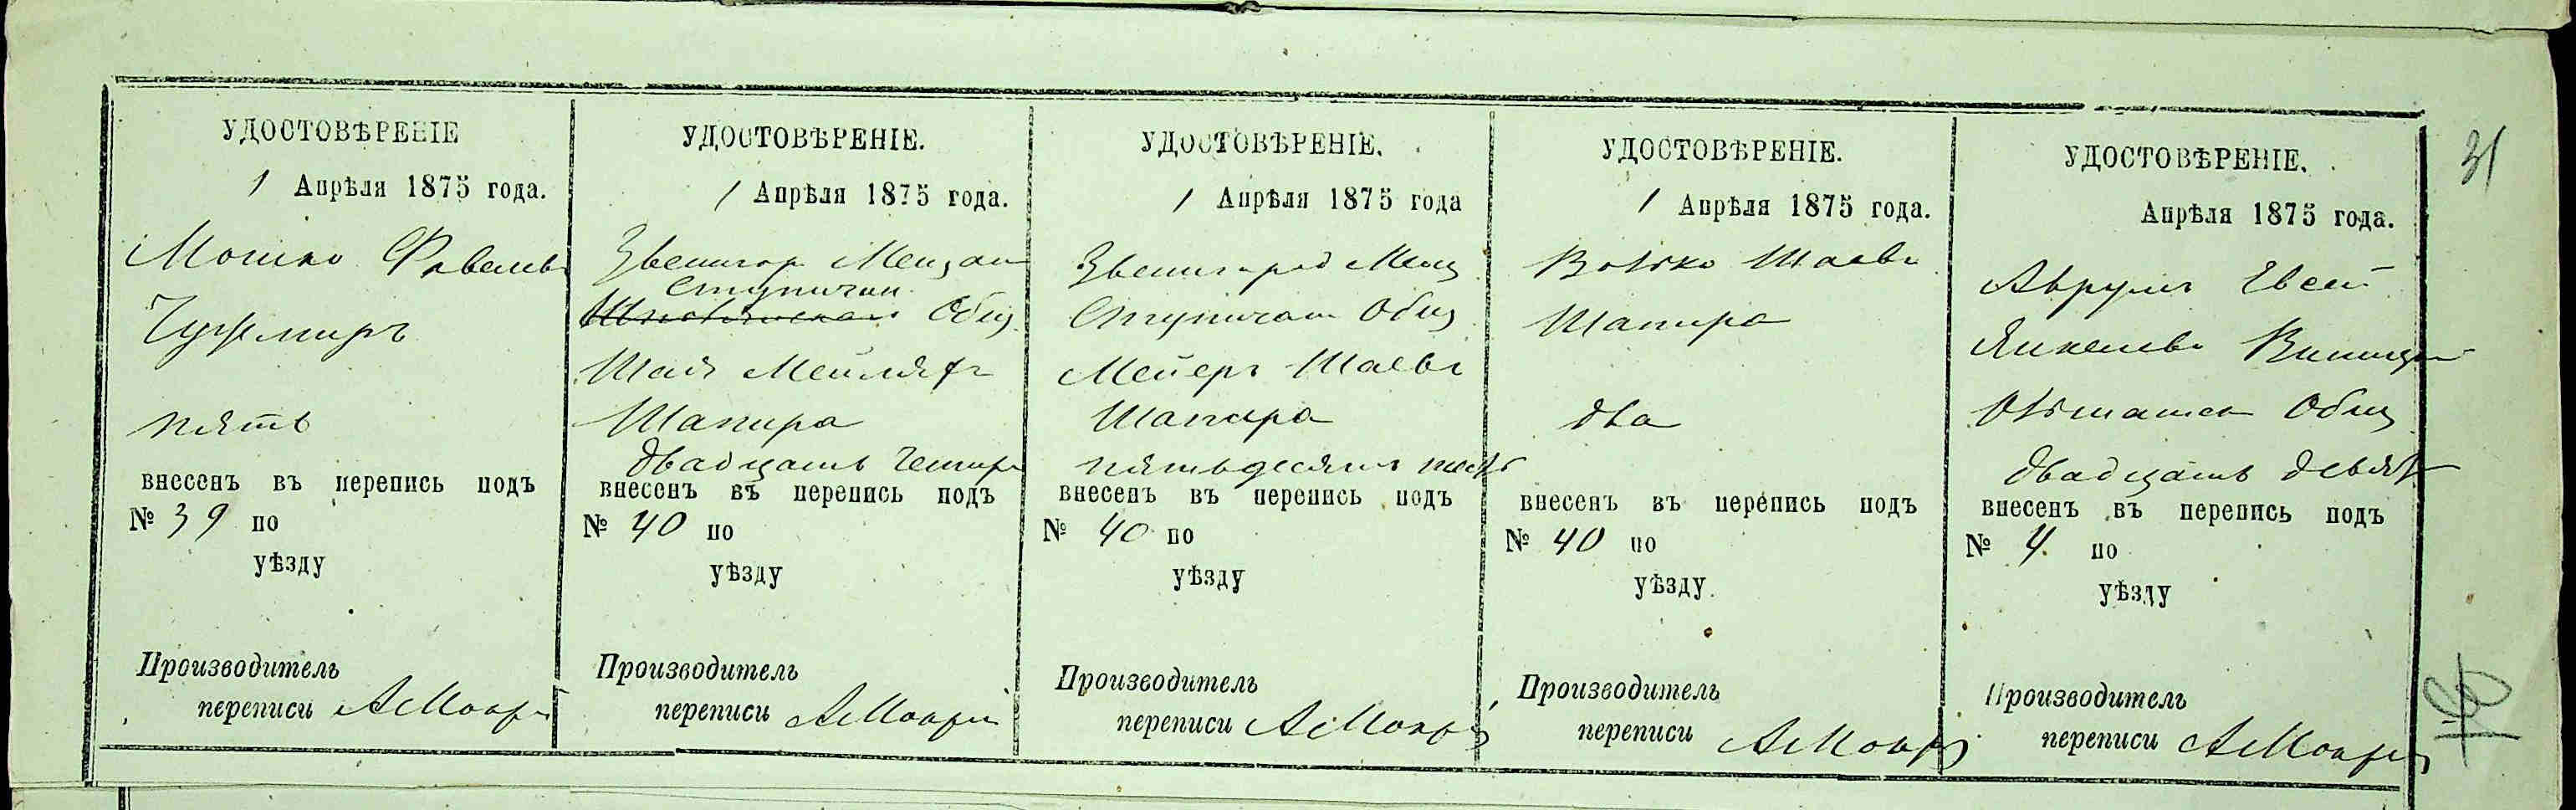 УДОСТОВѢРЕНІЕ
1 Апрѣля 1875 года.
Мошко
пять
внесенъ въ перепись подъ
№ 39 по
уѣзду
Производитель
переписи
УДОСТОВѢРЕНІЕ.
1 Апрѣля 1875 года.
Звенигор Мещан
Ступичан
Общ.
Шая
Шапира
двадцать четыре
внесенъ въ перепись подъ
№ 40 по
уѣзду
Производитель
переписи
УДОСТОВѢРЕНІЕ.
1 Апрѣля 1875 года
Звенигород Мещ
Ступичан Общ
Мейеръ Шаевъ
Шапира
пятьдесят шесть
внесенъ въ перепись подъ
№ 40 по
уѣзду
Производитель
переписи
УДОСТОВѢРЕНІЕ.
1 Апрѣля 1875 года.
Волько Шаевъ
Шапира
два
внесенъ въ перепись подъ
№ 40 по
уѣзду.
Производитель
переписи
УДОСТОВѢРЕНІЕ.
Апрѣля 1875 года.
Аврумъ Евсей
Янкелевъ
Общ
двадцать девять
внесенъ въ перепись подъ
№ 4. по
уѣзду
Производитель
переписи
31